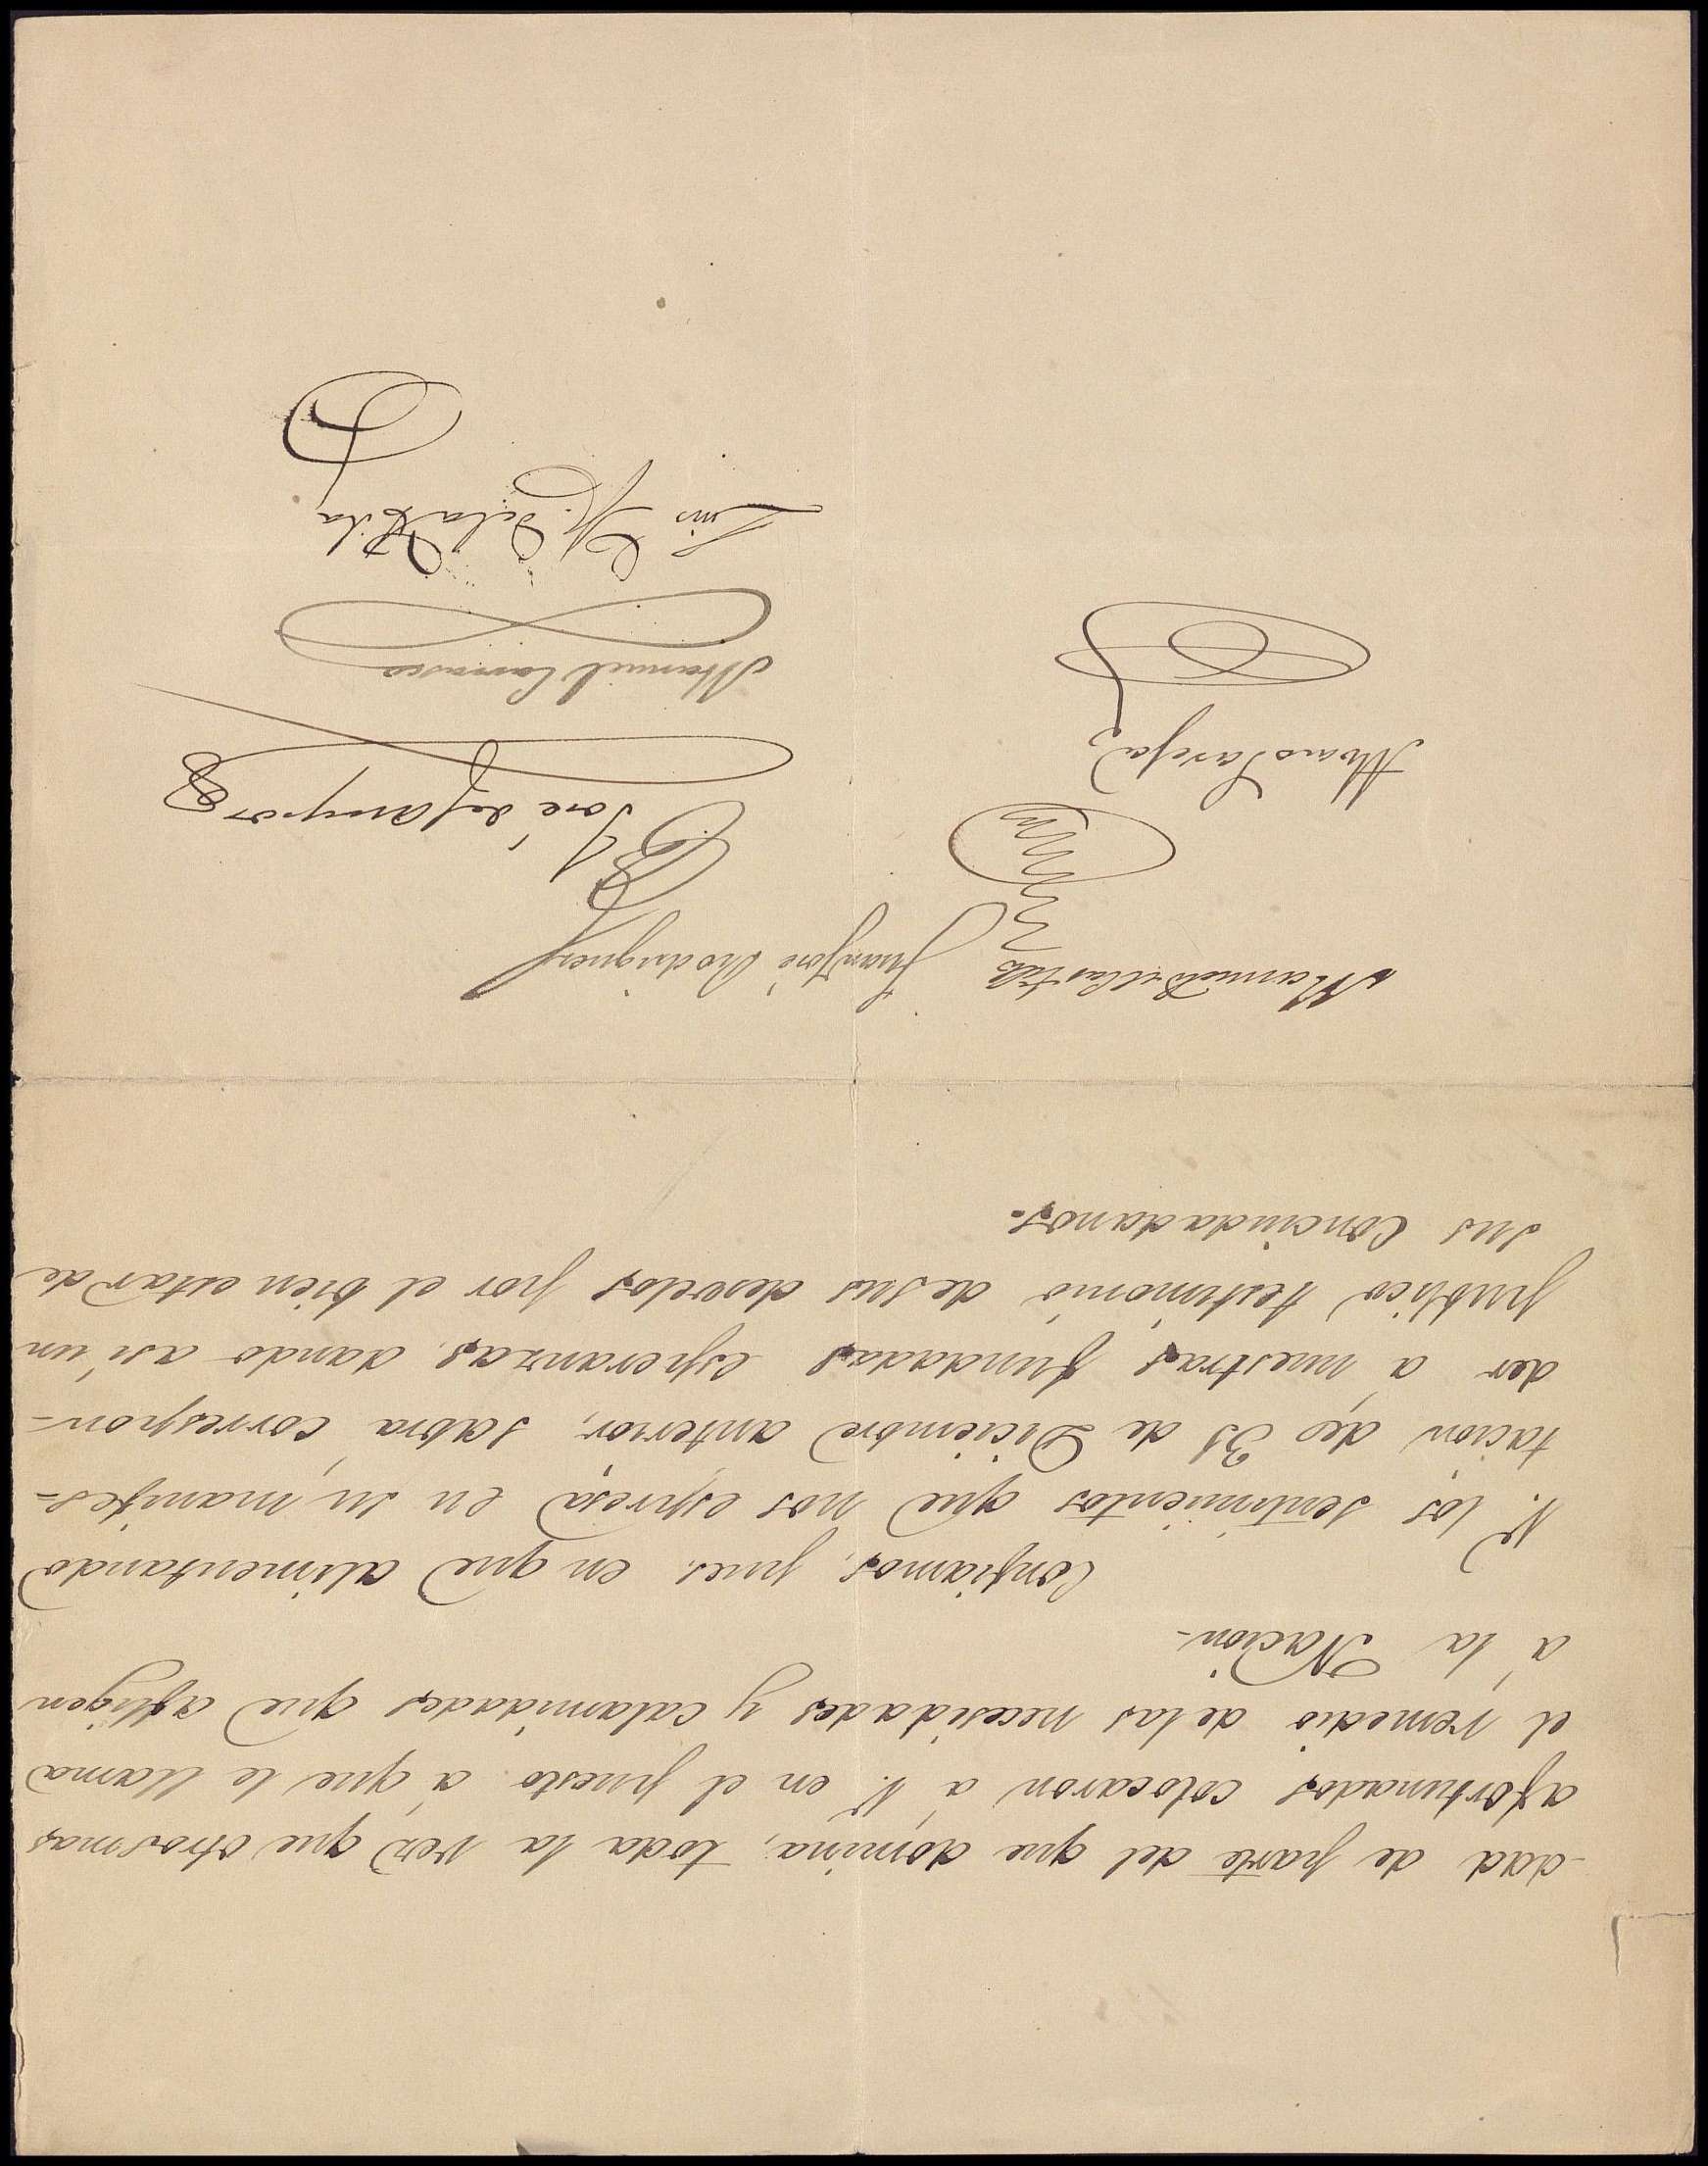 dad de parte del que domina, toda la vez que otros mas
afortunados colocaron á V. en el puesto á que le llama
el remedio de las necesidades y calamidades que afligen
á la Nacion-
Confiamos, pues, en que alimentando
V. los sentimientos que nos espresa en su manifes-
tacion del 31 de Diciembre anterior, sabrá correspon-
der á nuestras fundadas esperanzas, dando asi un
publico testimonio de sus desvelos por el bien estar de
sus Conciudadanos-
Manuel del Castillo
Juan José Rodriguez
José de Campos
Manuel Carrasco
Luis de la